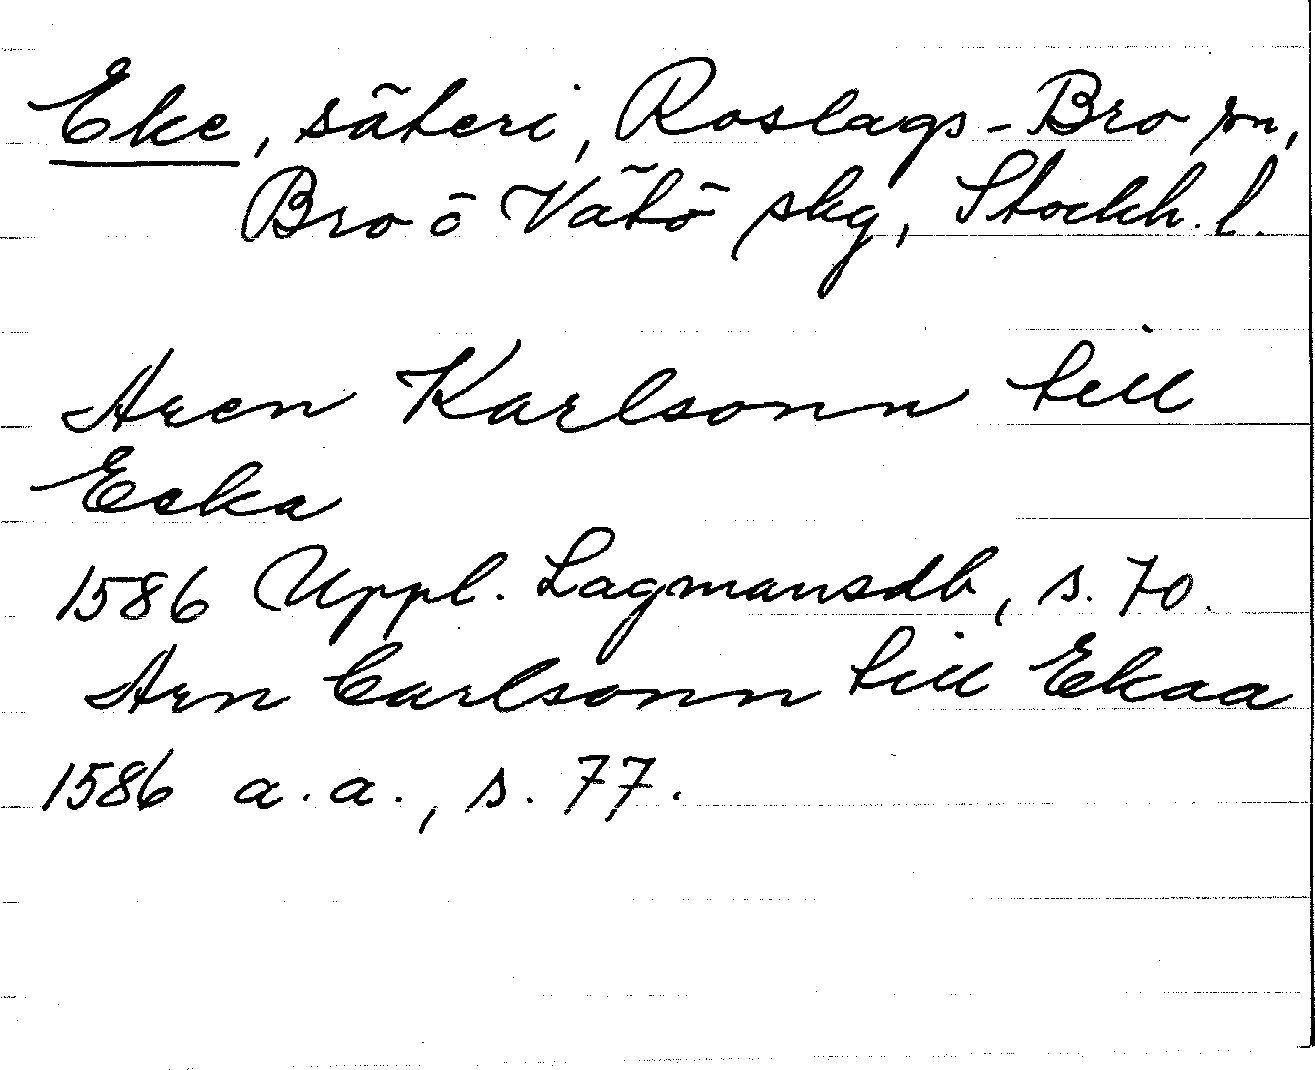 Eke, säteri, Roslags-Bro sn,
Bro o Vätö skg, Stockh. l.
Aren Karlsonn till
Ecka
1586 Uppl. Lagmansdb, s. 70.
Arn Carlsonn till Ekaa
1586 a.a., s. 77.